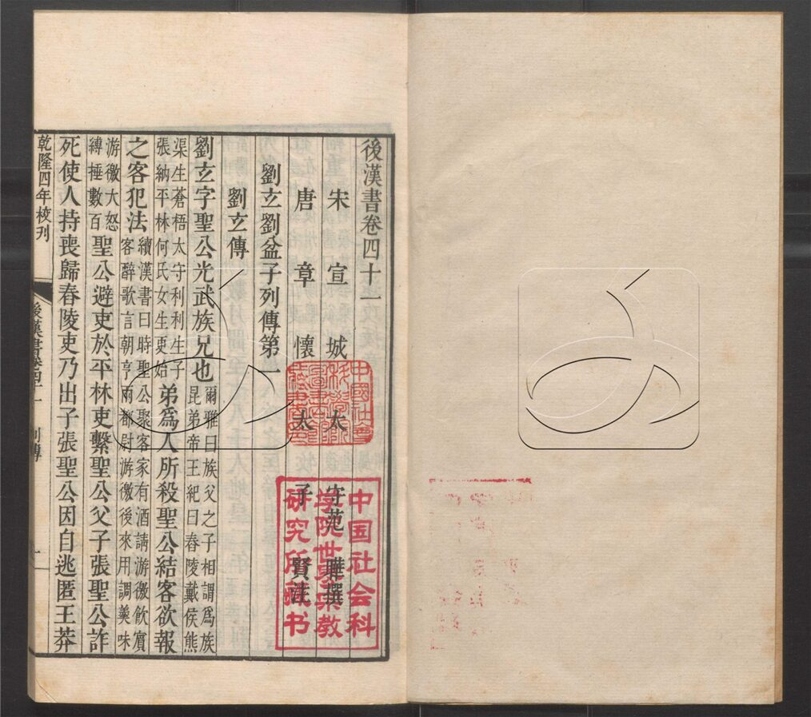 後漢書卷四十一
宋宣城太守范曄撰
唐章懷太子賢註
劉玄劉盆子列傳第一
劉玄傳
劉玄字聖公光武族兄也爾雅曰族父之子相謂爲族昆弟帝王紀曰舂陵戴侯熊
渠生蒼梧太守利利生子張納平林何氏女生更始弟爲人所殺聖公結客欲報
之客犯法續漢書曰時聖公聚客家有酒請游徼飲賓客醉歌言朝亨兩都尉游徼後來用調羹味
游徼大怒縛捶數百聖公避吏於平林吏繫聖公父子張聖公詐
死使人持喪歸舂陵吏乃出子張聖公因自逃匿王莽
乾隆四年校刊
後漢書卷四十一
列傳
一
中国社会科
学院世界宗教
研究所藏书